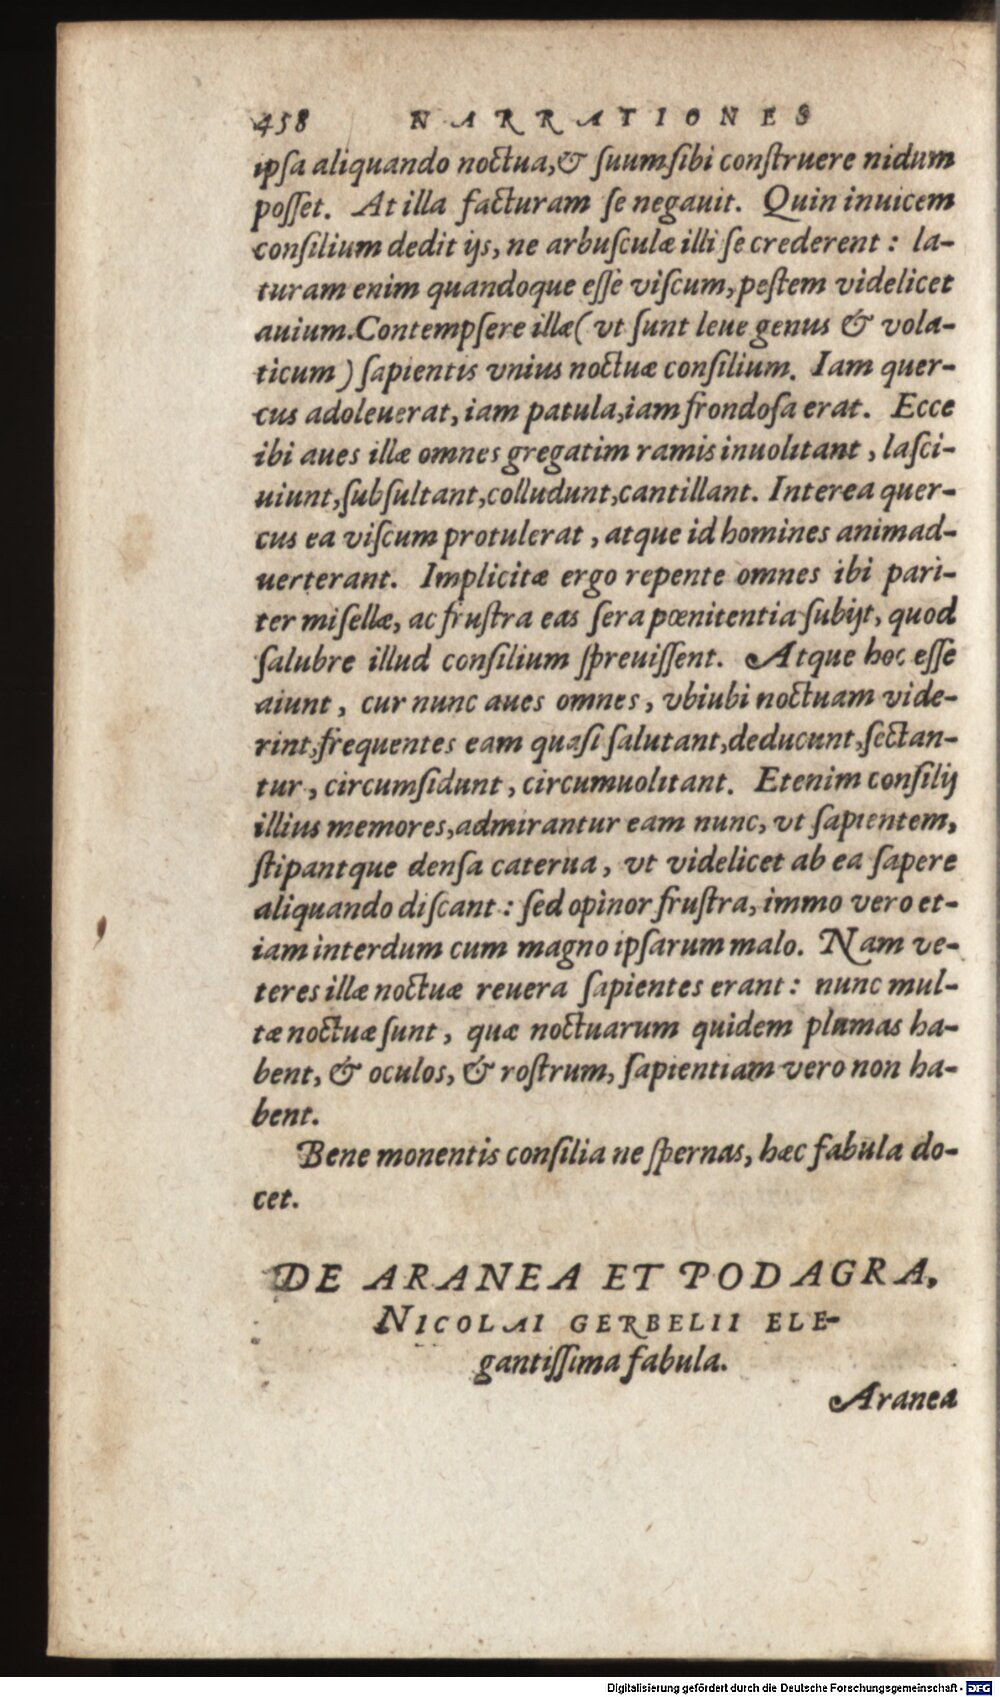 458 NARRATIONES
ipſa aliquando noctua,& ſuum ſibi conſtruere nidum
poſſet. At illa facturam ſe negauit. Quin inuicem
conſilium dedit ijs, ne arbuſculæ illi ſe crederent : la-
turam enim quandoque eſſe viſcum, peſtem videlicet
auium. Contempſere illæ ( vt ſunt leue genus & vola-
ticum ) ſapientis vnius noctuæ conſilium. Iam quer-
cus adoleuerat, iam patula, iam frondoſa erat. Ecce
ibi aues illæ omnes gregatim ramis inuolitant , laſci-
uiunt, ſubſultant, colludunt, cantillant. Interea quer-
cus ea viſcum protulerat , atque id homines animad-
uerterant. Implicitæ ergo repente omnes ibi pari-
ter miſellæ, ac fruſtra eas ſera pœnitentia ſubijt, quod
ſalubre illud conſilium ſpreuiſſent. Atque hoc eſſe
aiunt , cur nunc aues omnes , vbiubi noctuam vide-
rint, frequentes eam quaſi ſalutant, deducunt, ſectan-
tur , circumſidunt , circumuolitant. Etenim conſilij
illius memores, admirantur eam nunc, vt ſapientem,
ſtipantque denſa caterua , vt videlicet ab ea ſapere
aliquando diſcant : ſed opinor fruſtra, immo vero et-
iam interdum cum magno ipſarum malo. Nam ve-
teres illæ noctuæ reuera ſapientes erant : nunc mul-
tæ noctuæ ſunt , quæ noctuarum quidem plumas ha-
bent, & oculos, & roſtrum, ſapientiam vero non ha-
bent.
Bene monentis conſilia ne ſpernas, hæc fabula do-
cet.
DE ARANEA ET PODAGRA,
NICOLAI GERBELII ELE-
gantiſſima fabula.
Aranea
Digitalisierung gefördert durch die Deutsche Forschungsgemeinschaft - DFG